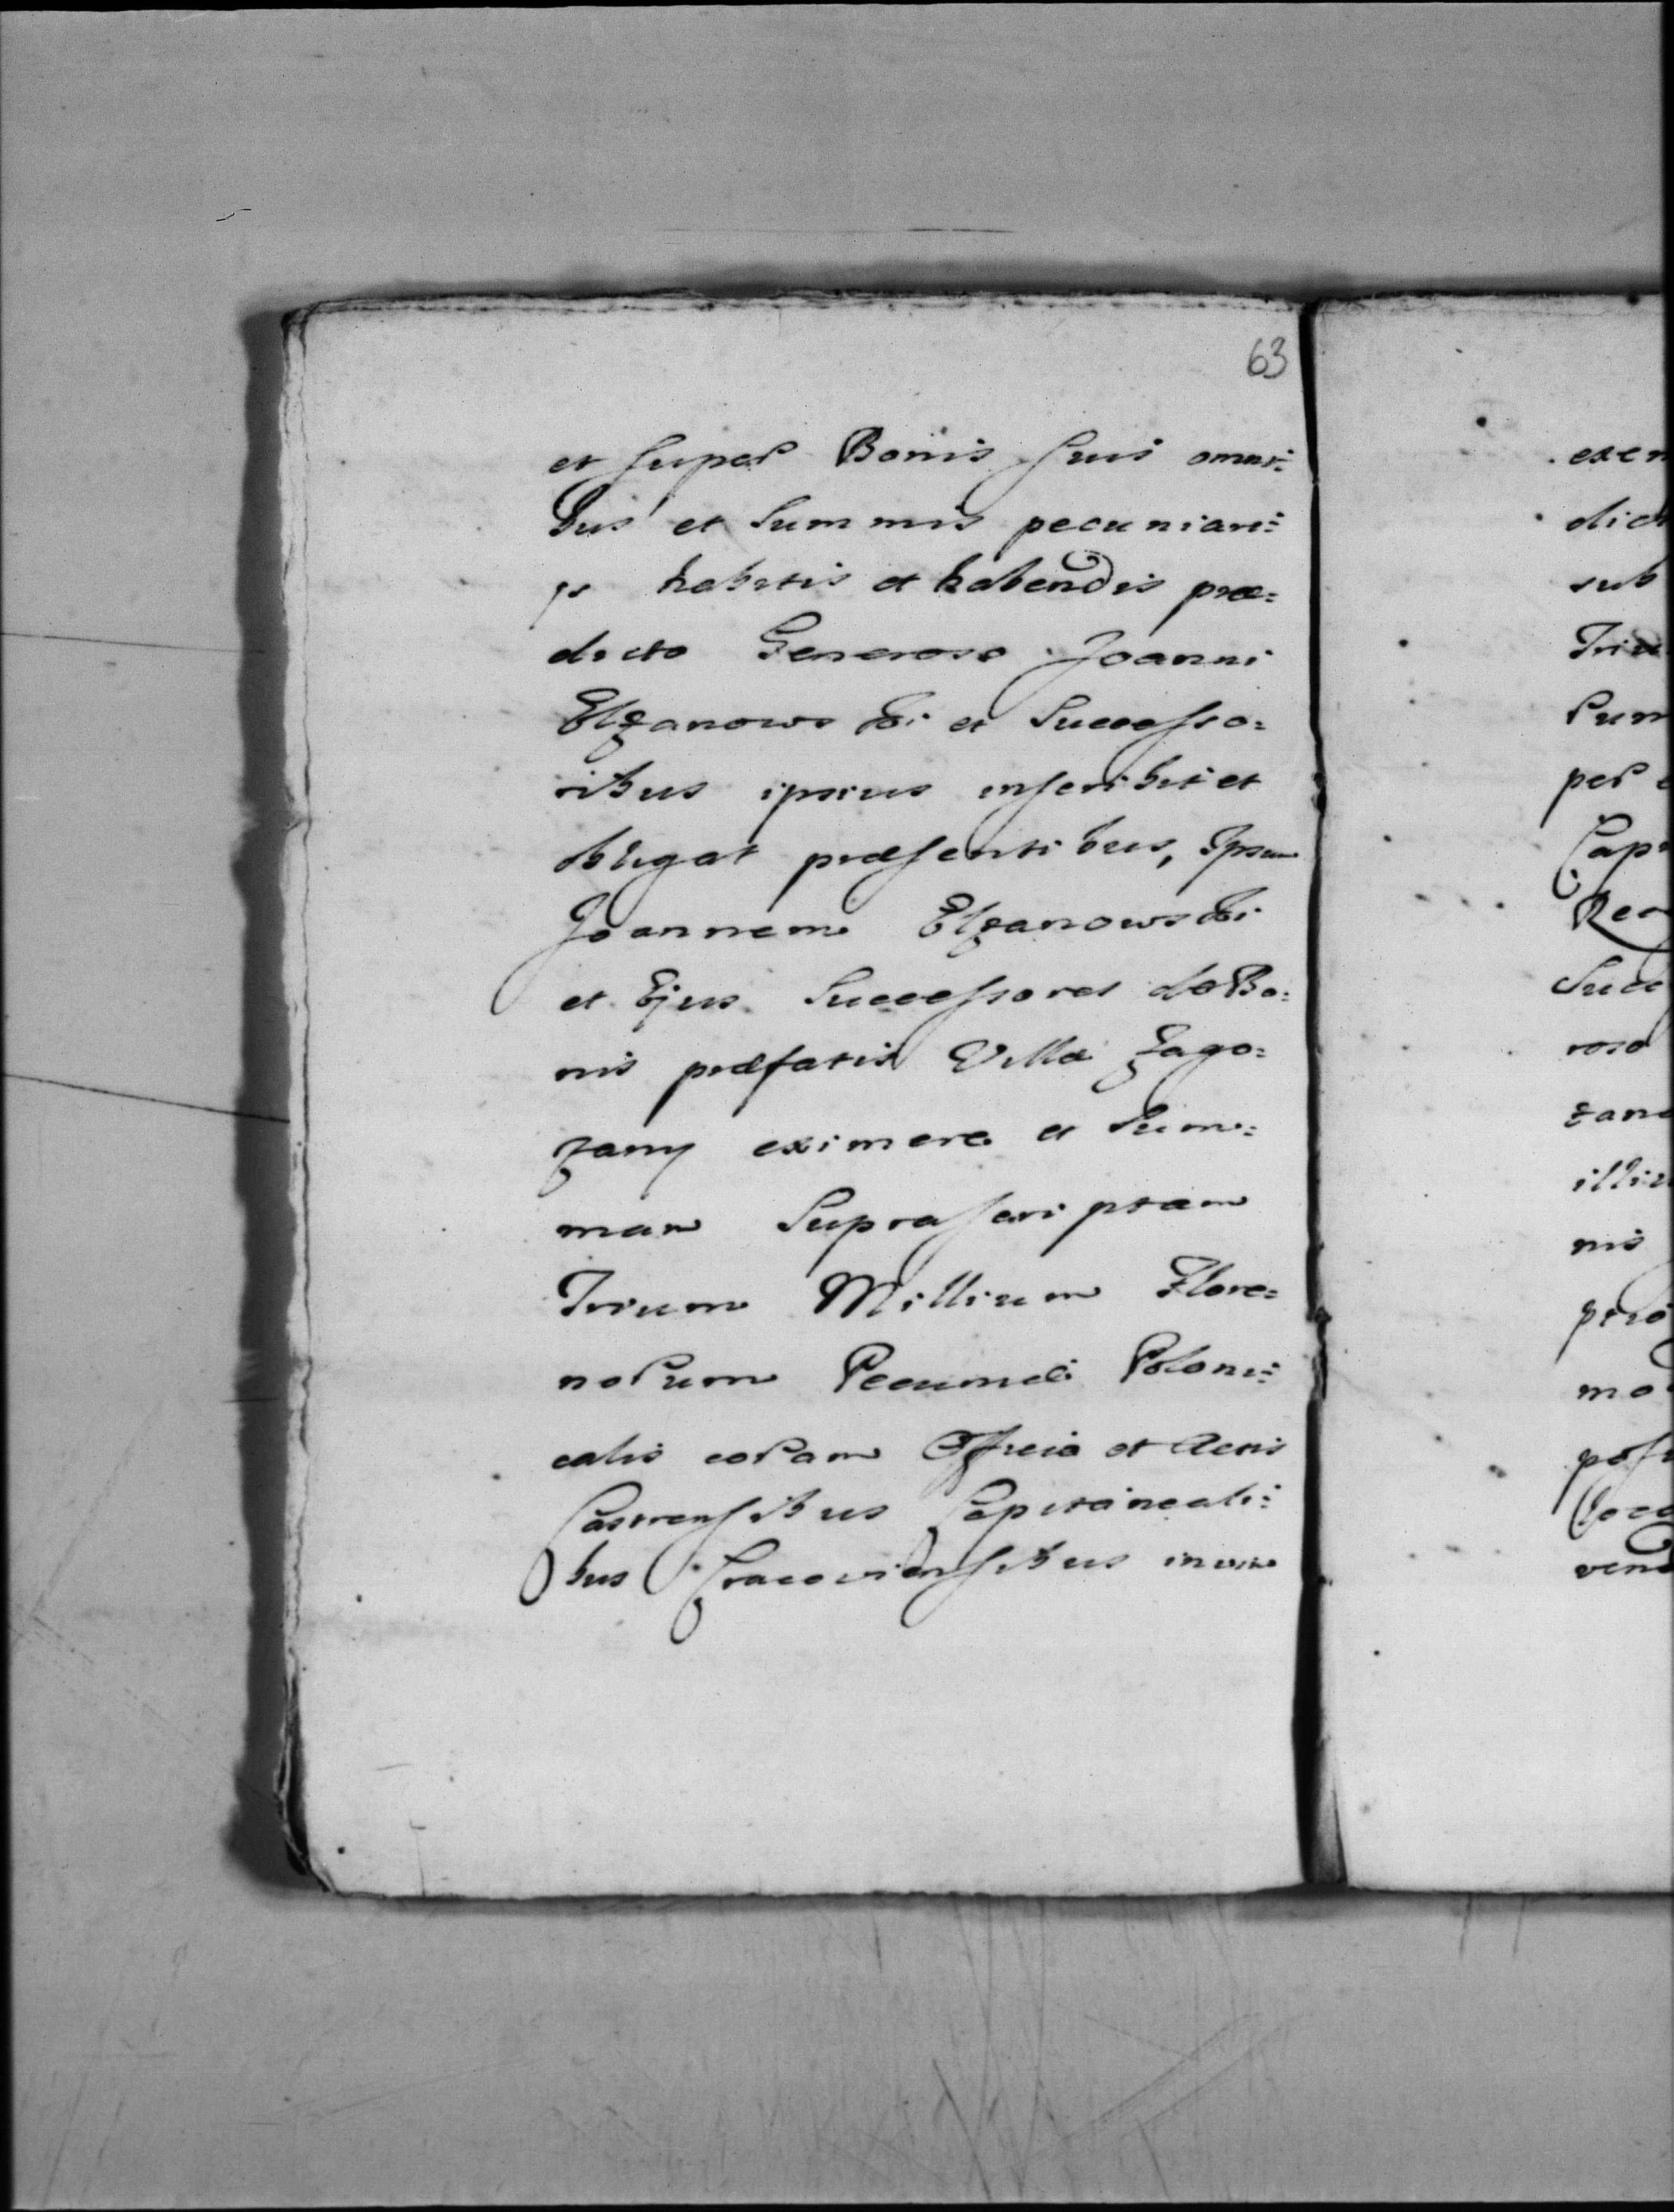 63
et super Bonis suis omni=
bus et Summis pecuniari=
js habitis et habendis præ=
dicto Generoso Joanni
Elzanowski et Successo=
ribus ipsius inscribit et
obligat præsentibus, Ipsum
Joannem Elzanowski
et Ejus Successores de Bo=
nis præfatis Villæ Zago=
rzany eximere et Sum=
mam Suprascriptam
Trium Millium Flore=
norum Pecuniæ Poloni=
calis coram Officio et Actis
Castrensibus Capitaneali=
bus Cracoviensibus in vim
exen
dict
sub
Triu
Sum
per
Cap
Reo
Succ
roso
zano
illiu
nis
prio
mo
poss
loco
vend